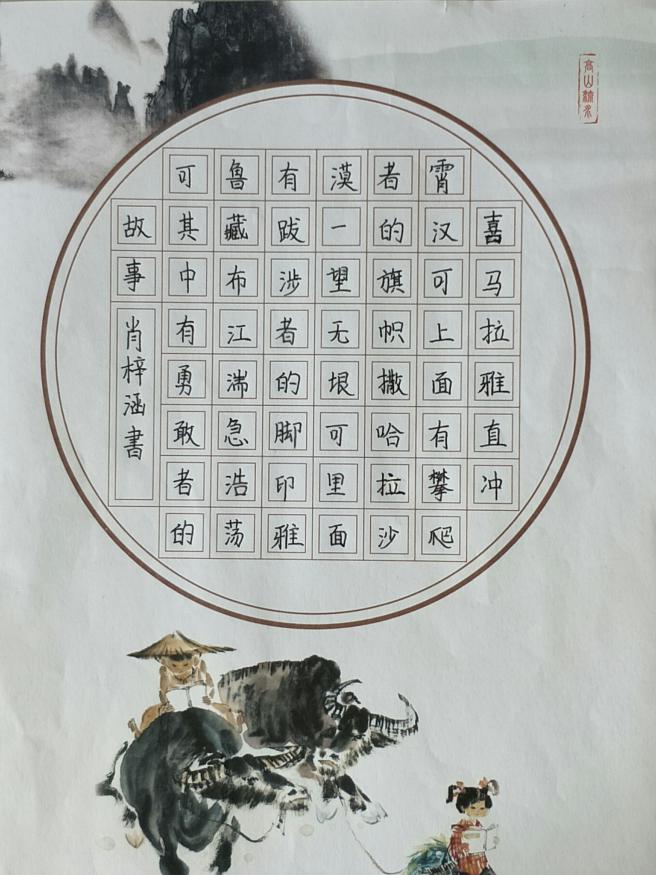 喜马拉雅直冲
霄汉可上面有攀爬
者的旗帜撒哈拉沙
漠一望无垠可里面
有跋涉者的脚印雅
鲁藏布江湍急浩荡
可其中有勇敢者的
故事
肖梓涵書
高山流水